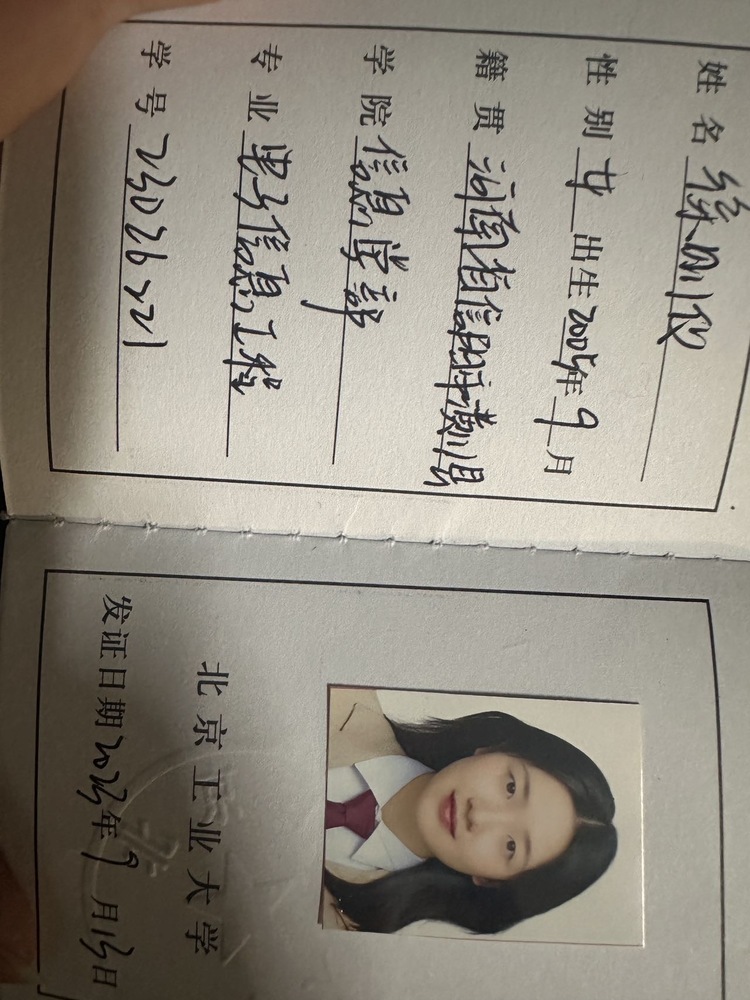 姓名
性别 女 出生 2005年 9 月
籍贯 河南省信阳市潢川县
学院 信息学部
专业 电子信息工程
学号 23026221
北京工业大学
发证日期 2023年 9 月 13 日